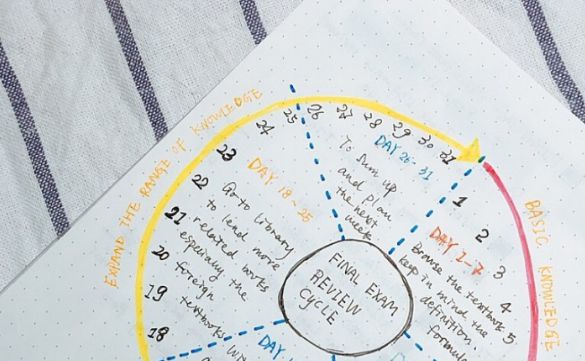 FINAL EXAM
REVIEW
CYCLE
BASIC KNOWLEDGE
1
2
3
4
5
DAY 1-7
Browse the textbook
keep in mind the
definition
formula
EXPAND THE RANGE OF KNOWLEDGE
18
19
20
21
22
23
24
25
DAY 18~25
Go to library
to lead more
related works
especially the
foreign
textworks
26
27
28
29
30
31
DAY 26-31
To sum up
and plan
the next
week